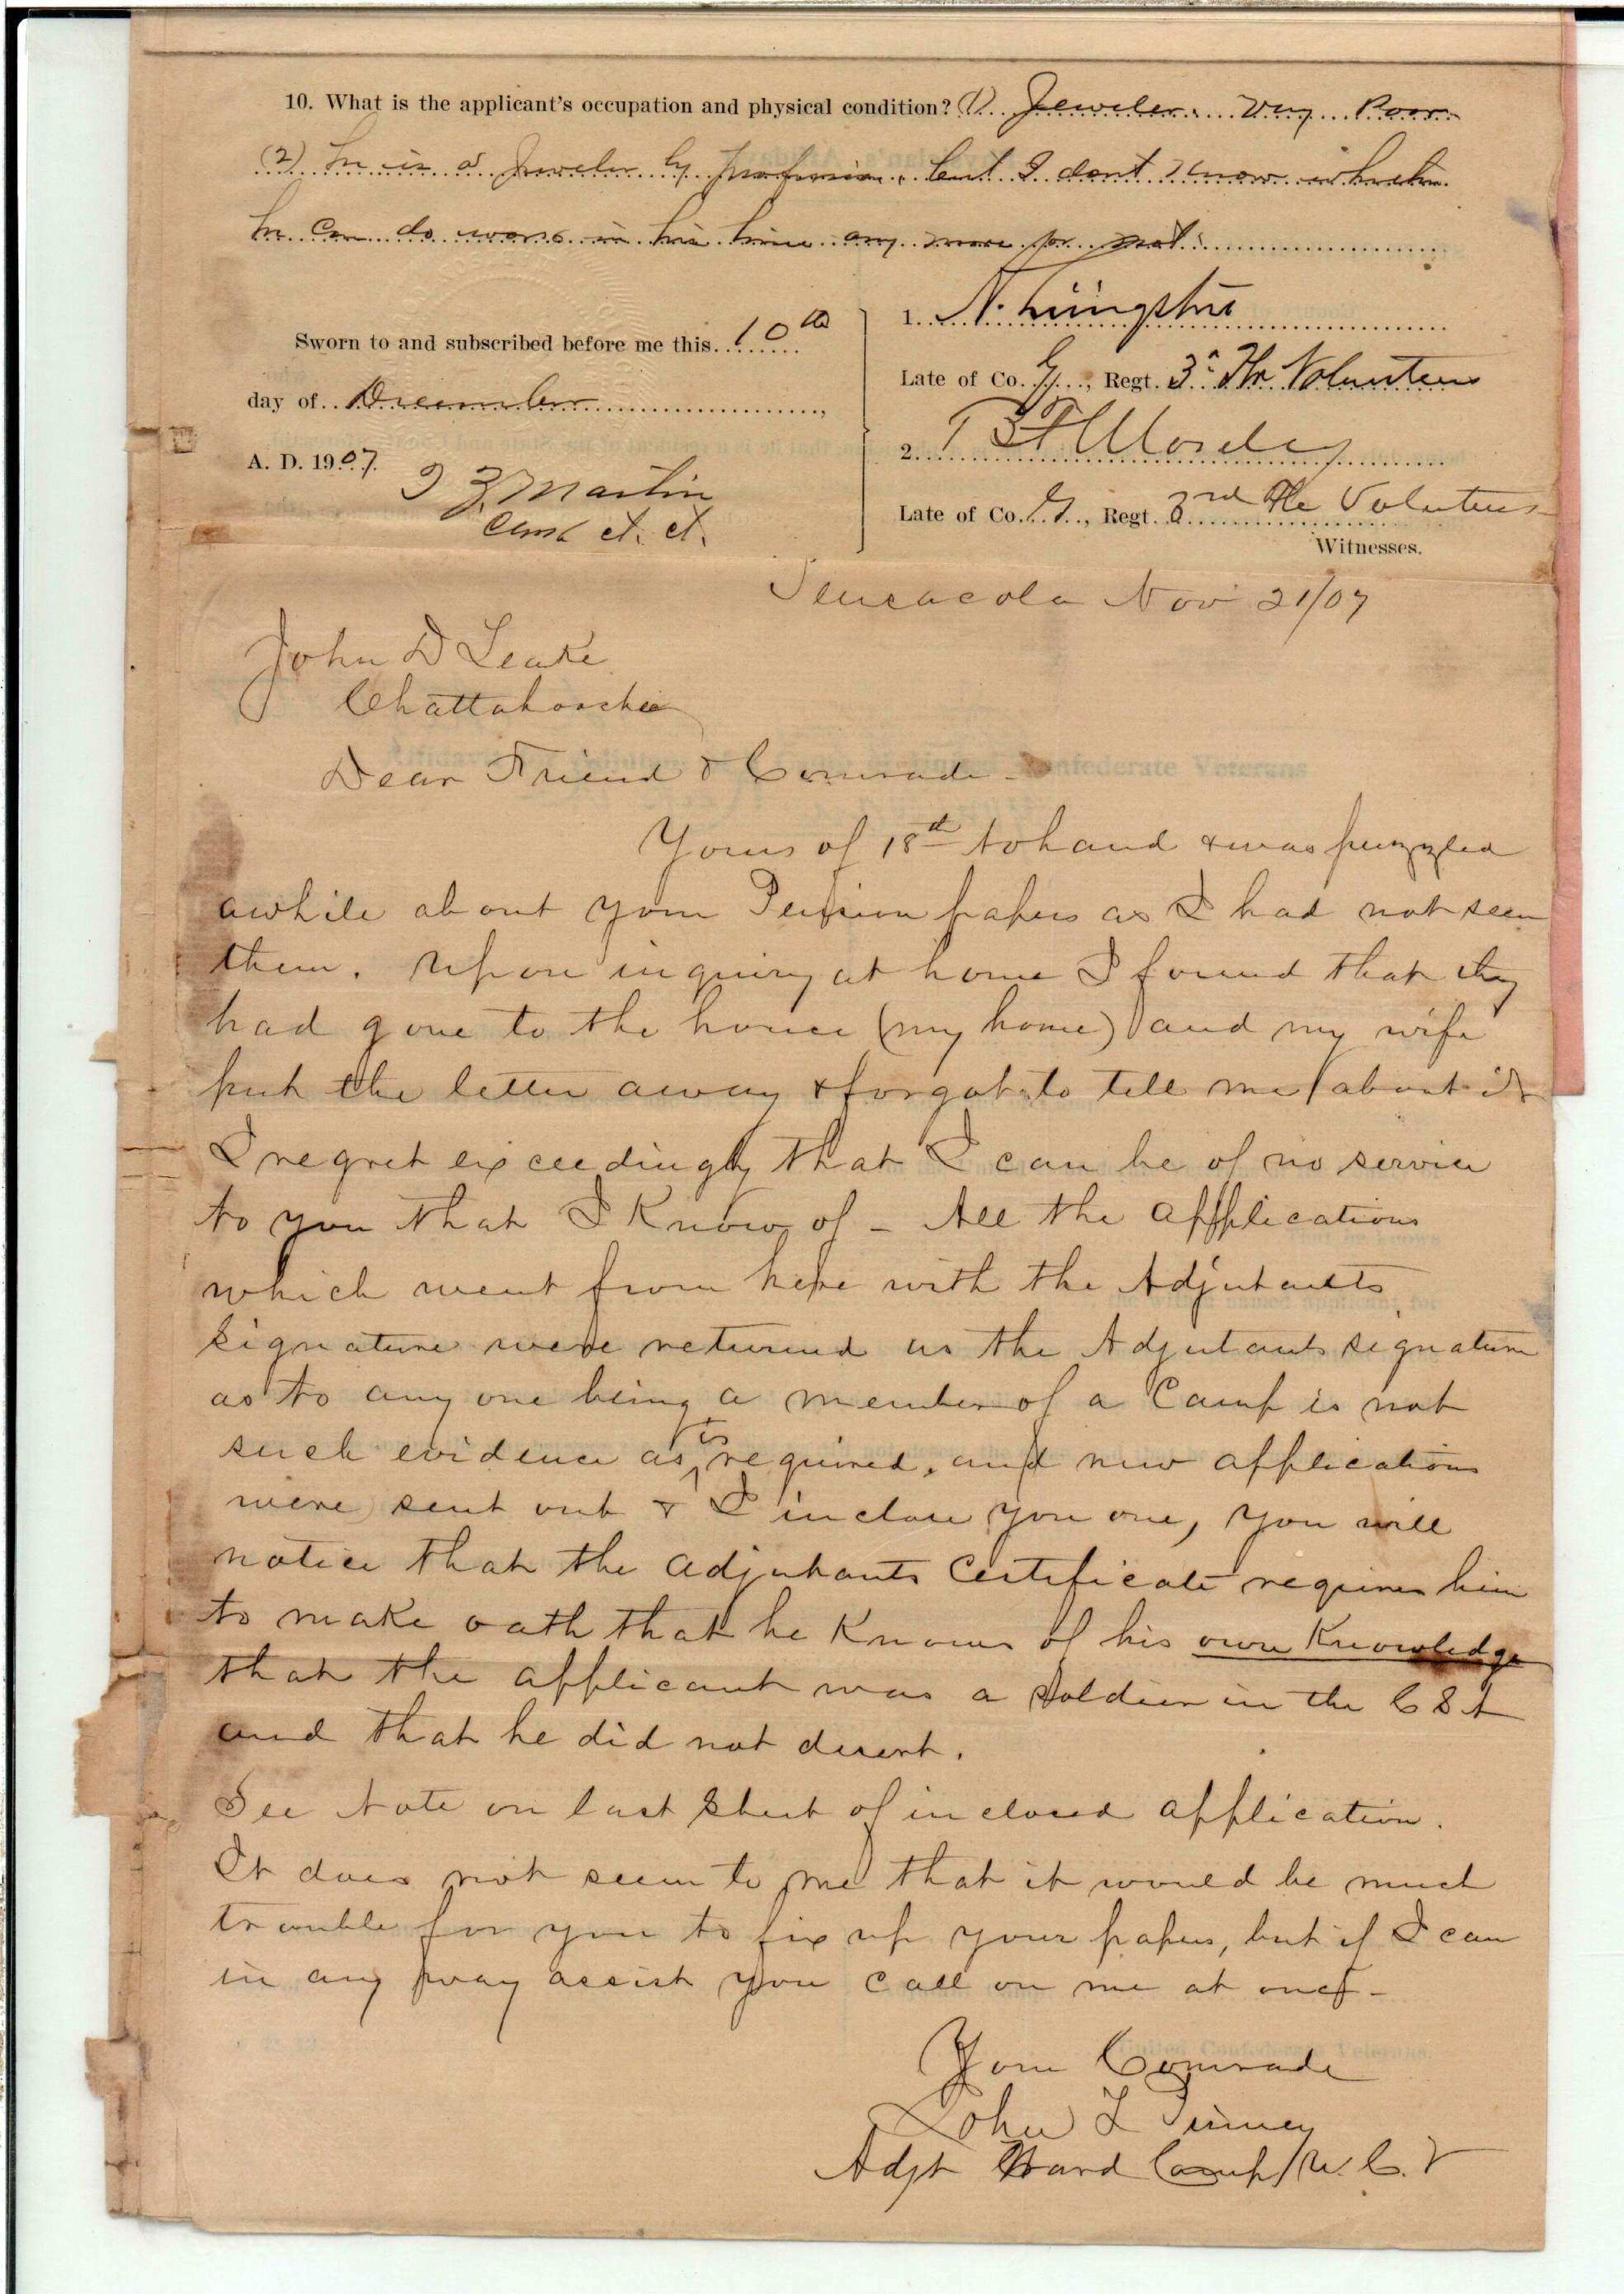 10. What is the applicant's occupation and physical condition? (1) Jeweler. Very Poor
(2) he is a Jeweler by profession, but I dont know whether
he can do work in his line any more or not
Sworn to and subscribed before me this 10th
day of December,
A. D. 1907.
Martin
1. N. Livingston
Late of Co. G, Regt. 3d Fla Volunteers
2. Mosley
Late of Co. G, Regt. 3rd Fla Volunteers
Witnesses.
Pensacola Nov 21/07
John D Leake
Chattahoochee
Dear Friend & Comrade -
Yours of 18th to hand & was puzzled
awhile about your Pension papers as I had not seen
them. Upon inquiry at home I found that they
had gone to the house (my home) and my wife
put the letter away & forgot to tell me about it
I regret exceedingly that I can be of no service
to you that I Know of - All the applications
which went from here with the Adjutants
signature were returned as the Adjutants signature
as to any one being a member of a Camp is not
such evidence as is required, and new applications
were sent out & I inclose you one, you will
notice that the adjutants Certificate requires him
to make oath that he Knows of his own Knowledge
that the applicant was a soldier in the C S A
and that he did not desert.
See Note on last sheet of inclosed application.
It does not seem to me that it would be much
trouble for you to fix up your papers, but if I can
in any way assist you call on me at once -
Your Comrade
John L
Adjt Ward Camp U. C. V